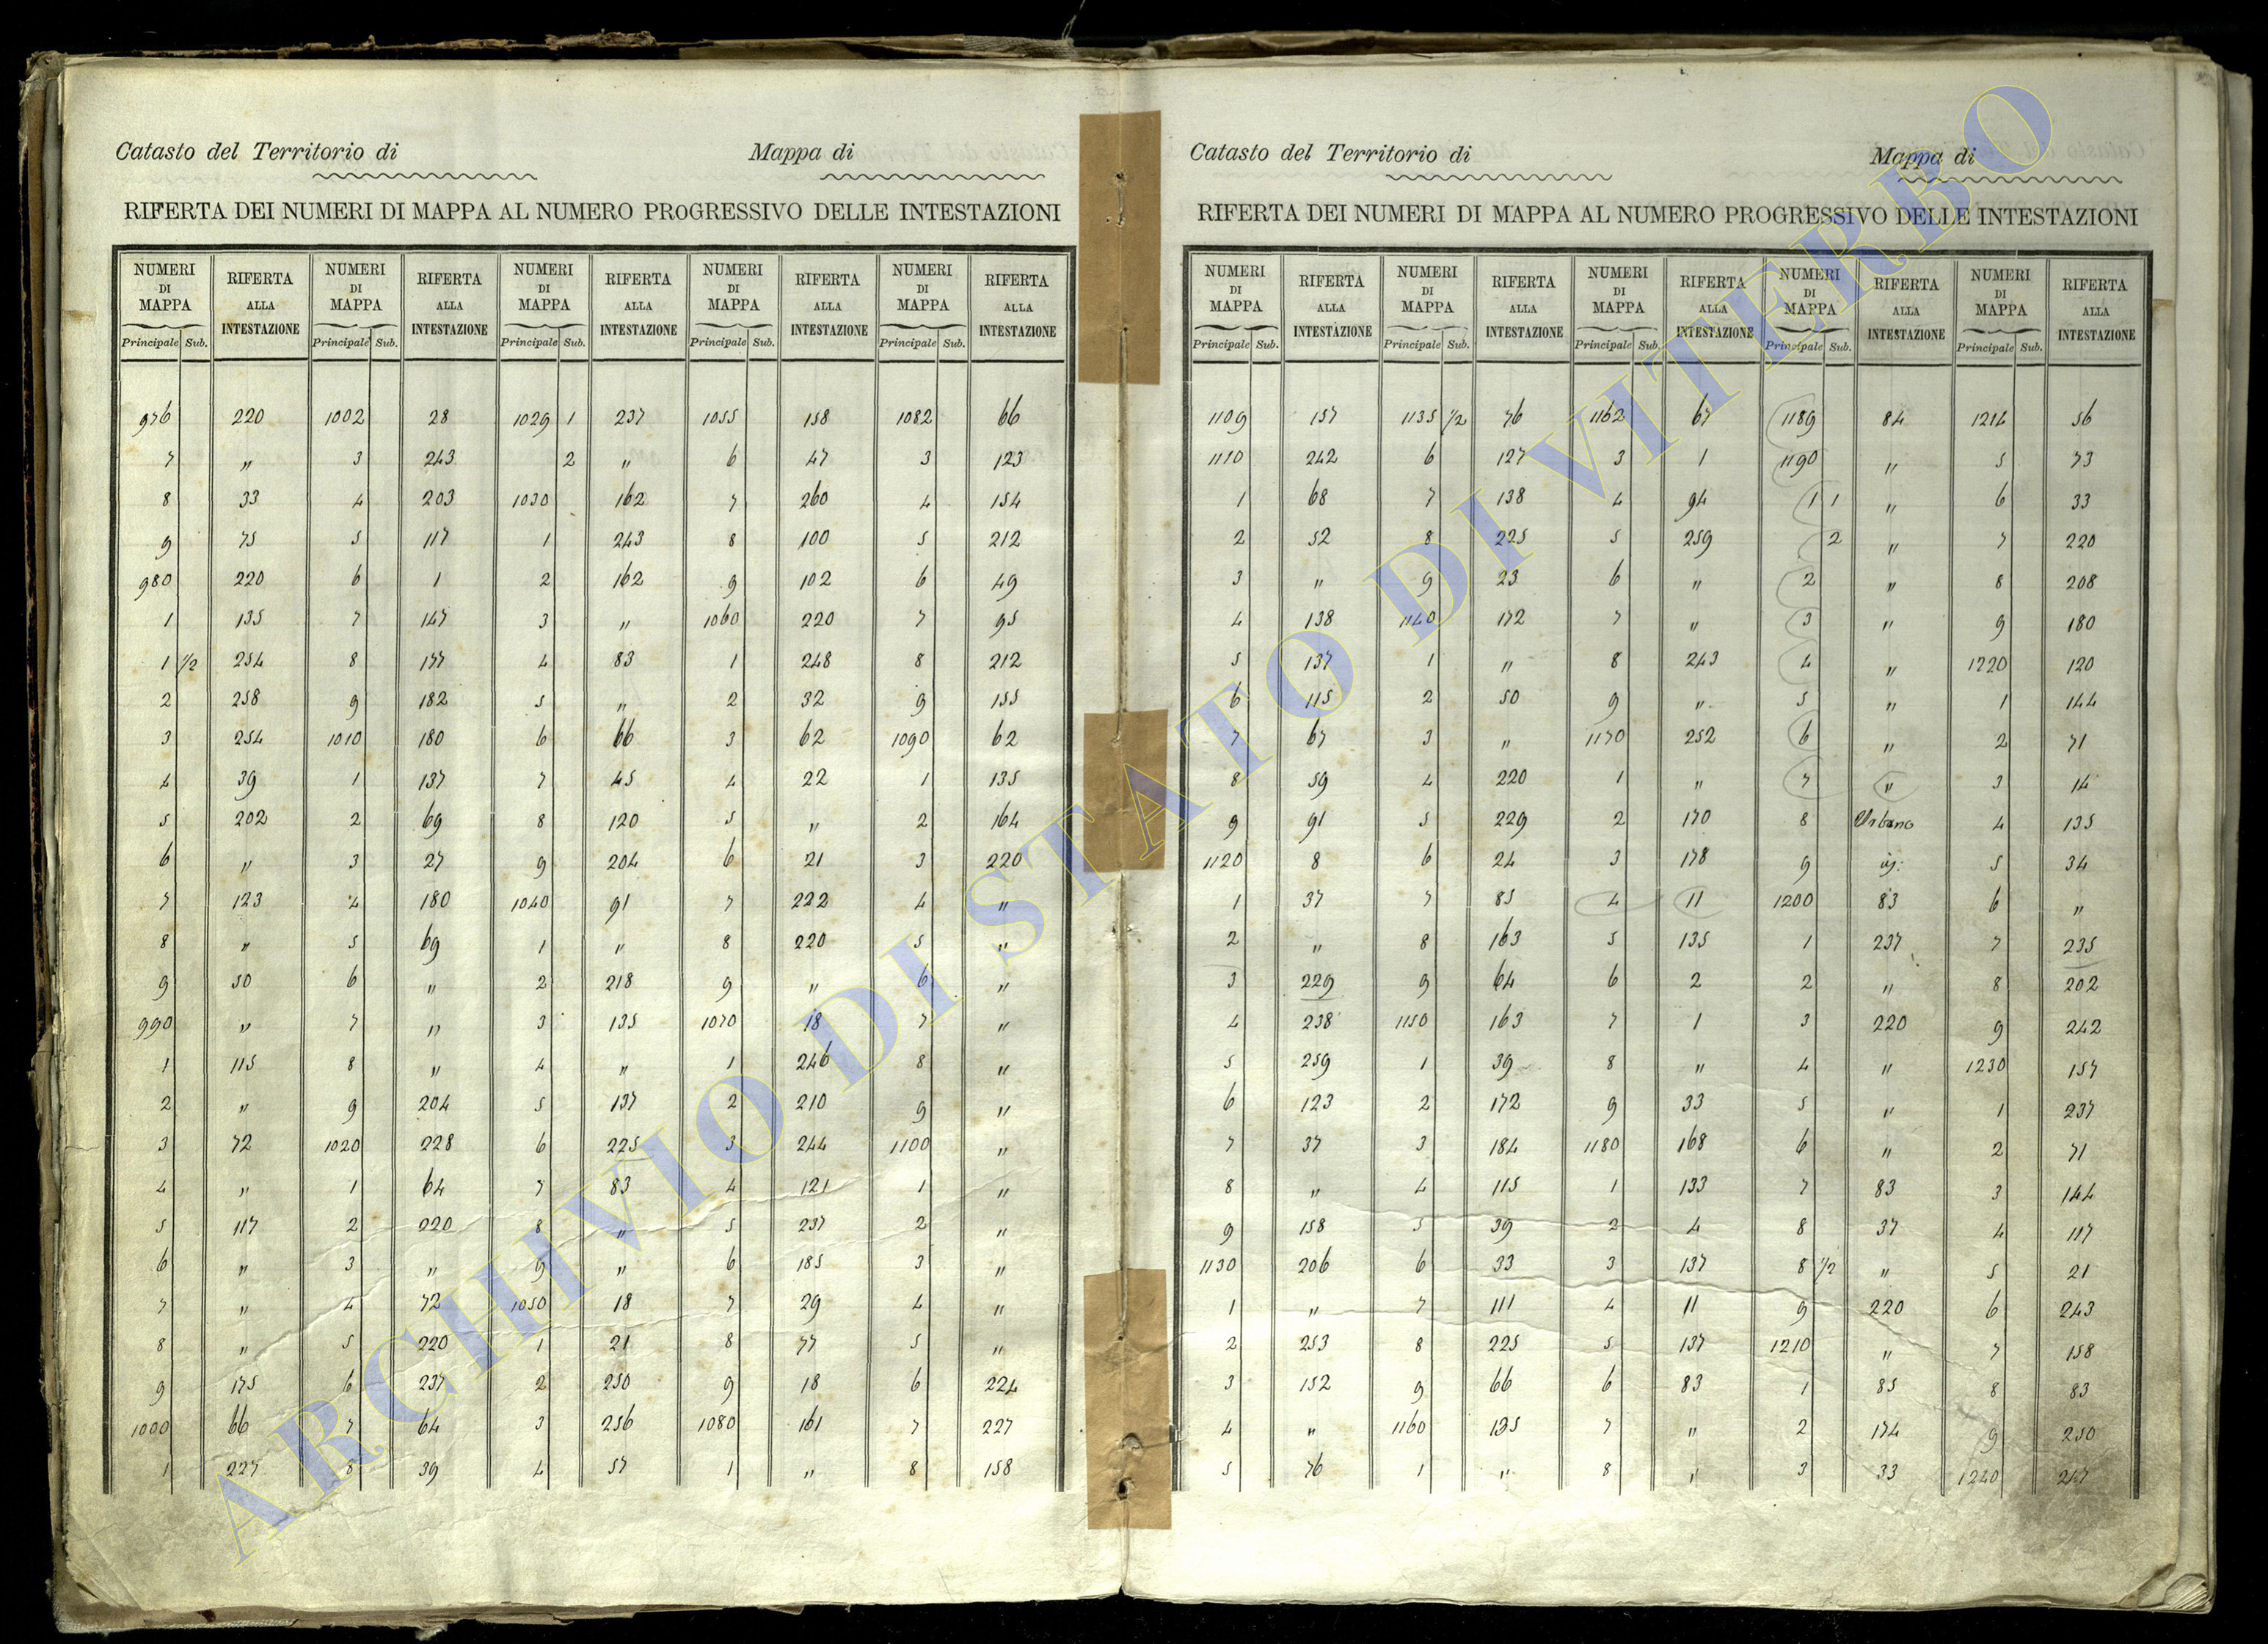 Catasto del Territorio di Mappa di
RIFERTA DEI NUMERI DI MAPPA AL NUMERO PROGRESSIVO DELLE INTESTAZIONI
NUMERI DI MAPPA RIFERTA ALLA INTESTAZIONE NUMERI DI MAPPA RIFERTA ALLA INTESTAZIONE NUMERI DI MAPPA RIFERTA ALLA INTESTAZIONE NUMERI DI MAPPA RIFERTA ALLA INTESTAZIONE NUMERI DI MAPPA RIFERTA ALLA INTESTAZIONE
Principale Sub. Principale Sub. Principale Sub. Principale Sub. Principale Sub.
976 220 1002 28 1029 1 237 1055 158 1082 66
7 " 3 243 2 " 6 47 3 123
8 33 4 203 1030 162 7 260 4 154
9 75 5 117 1 243 8 100 5 212
980 220 6 1 2 162 9 102 6 49
1 135 7 147 3 " 1060 220 7 95
1 1/2 254 8 177 4 83 1 248 8 212
2 258 9 182 5 " 2 32 9 155
3 254 1010 180 6 66 3 62 1090 62
4 39 1 137 7 45 4 22 1 135
5 202 2 69 8 120 5 " 2 164
6 " 3 27 9 204 6 21 3 220
7 123 4 180 1040 91 7 222 4 "
8 " 5 69 1 " 8 220 5 "
9 50 6 " 2 218 9 " 6 "
990 " 7 " 3 135 1070 18 7 "
1 115 8 " 4 " 1 246 8 "
2 " 9 204 5 137 2 210 9 "
3 72 1020 228 6 225 3 244 1100 "
4 " 1 64 7 83 4 121 1 "
5 117 2 220 8 " 5 237 2 "
6 " 3 " 9 " 6 185 3 "
7 " 4 72 1050 18 7 29 4 "
8 " 5 220 1 21 8 77 5 "
9 175 6 237 2 250 9 18 6 224
1000 66 7 64 3 256 1080 161 7 227
1 227 8 39 4 57 1 " 8 158
Catasto del Territorio di Mappa di
RIFERTA DEI NUMERI DI MAPPA AL NUMERO PROGRESSIVO DELLE INTESTAZIONI
NUMERI DI MAPPA RIFERTA ALLA INTESTAZIONE NUMERI DI MAPPA RIFERTA ALLA INTESTAZIONE NUMERI DI MAPPA RIFERTA ALLA INTESTAZIONE NUMERI DI MAPPA RIFERTA ALLA INTESTAZIONE NUMERI DI MAPPA RIFERTA ALLA INTESTAZIONE
Principale Sub. Principale Sub. Principale Sub. Principale Sub. Principale Sub.
1109 157 1135 1/2 76 1162 67 1189 84 1214 56
1110 242 6 127 3 1 1190 " 5 73
1 68 7 138 4 94 1 1 " 6 33
2 52 8 225 5 259 2 " 7 220
3 " 9 23 6 " 2 " 8 208
4 138 1140 172 7 " 3 " 9 180
5 137 1 " 8 243 4 " 1220 120
6 115 2 50 9 " 5 " 1 144
7 67 3 " 1170 252 6 " 2 71
8 59 4 220 1 " 7 " 3 14
9 91 5 229 2 170 8 Urbano 4 135
1120 8 6 24 3 178 9 5 34
1 37 7 85 4 11 1200 83 6 "
2 " 8 163 5 135 1 237 7 235
3 229 9 64 6 2 2 " 8 202
4 238 1150 163 7 1 3 220 9 242
5 259 1 39 8 " 4 " 1230 157
6 123 2 172 9 33 5 " 1 237
7 37 3 184 1180 168 6 " 2 71
8 " 4 115 1 133 7 83 3 144
9 158 5 39 2 4 8 37 4 117
1130 206 6 33 3 137 8 1/2 " 5 21
1 " 7 111 4 11 9 220 6 243
2 253 8 225 5 137 1210 " 7 158
3 152 9 66 6 83 1 85 8 83
4 " 1160 135 7 " 2 174 9 250
5 76 1 " 8 " 3 33 1240 247
ARCHIVIO DI STATO DI VITERBO